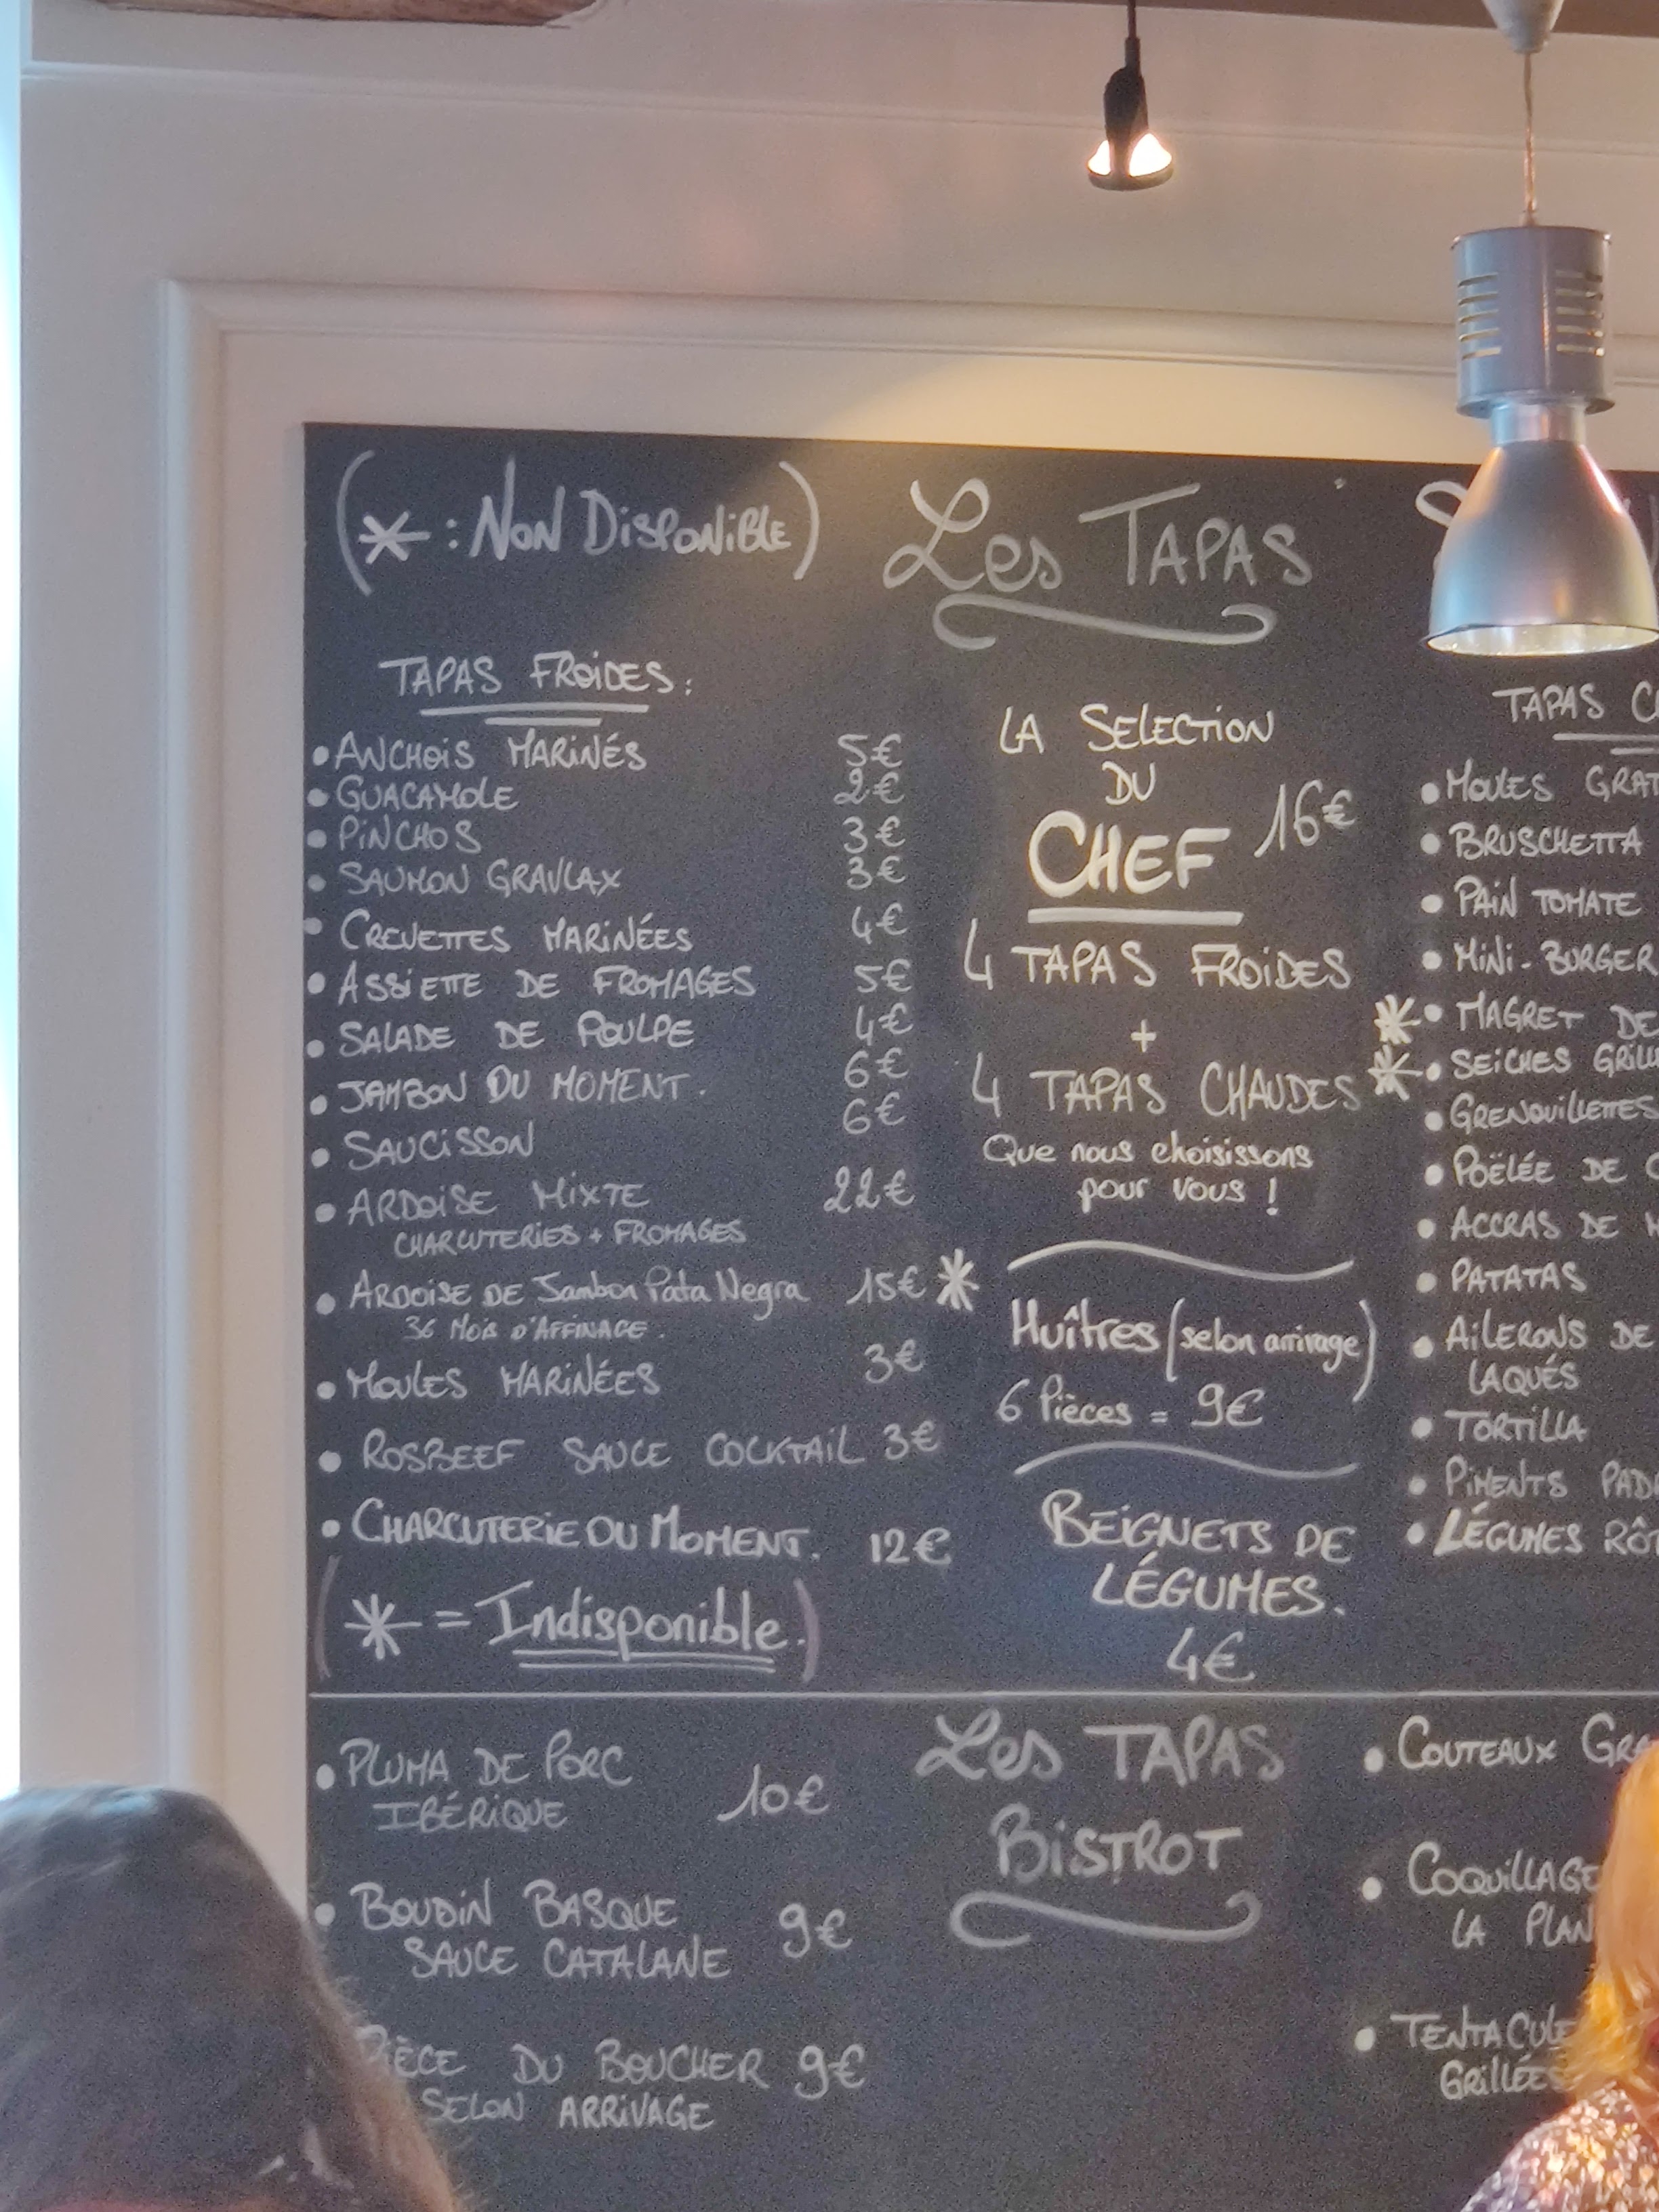 (* : NON DISPONIBLE)
Les TAPAS
TAPAS FROIDES :
• ANCHOIS MARINÉS 5€
• GUACAMOLE 2€
• PINCHOS 3€
• SAUMON GRAVLAX 3€
• CREVETTES MARINÉES 4€
• ASSIETTE DE FROMAGES 5€
• SALADE DE POULPE 4€
• JAMBON DU MOMENT. 6€
• SAUCISSON 6€
• ARDOISE MIXTE 22€
CHARCUTERIES + FROMAGES
• ARDOISE DE Jambon Pata Negra 15€ *
36 MOIS D'AFFINAGE.
• MOULES MARINÉES 3€
• ROSBEEF SAUCE COCKTAIL 3€
• CHARCUTERIE DU MOMENT. 12€
(* = Indisponible.)
LA SELECTION
DU
CHEF 16€
4 TAPAS FROIDES
+
4 TAPAS CHAUDES
Que nous choisissons
pour vous !
Huîtres (selon arrivage)
6 Pièces = 9€
BEIGNETS DE
LÉGUMES.
4€
TAPAS
• MOULES
• BRUSCHETTA
• PAIN TOMATE
• MINI-BURGER
* • MAGRET DE
* • SEICHES
• GRENOUILLETTES
• POËLÉE DE
• ACCRAS DE
• PATATAS
• AILERONS DE
LAQUÉS
• TORTILLA
• PIMENTS
• LÉGUMES
Les TAPAS
BISTROT
• PLUMA DE PORC
IBÉRIQUE 10€
• BOUDIN BASQUE
SAUCE CATALANE 9€
PIÈCE DU BOUCHER 9€
SELON ARRIVAGE
• COUTEAUX
• COQUILLAGE
LA
• TENTACULE
GRILLÉE